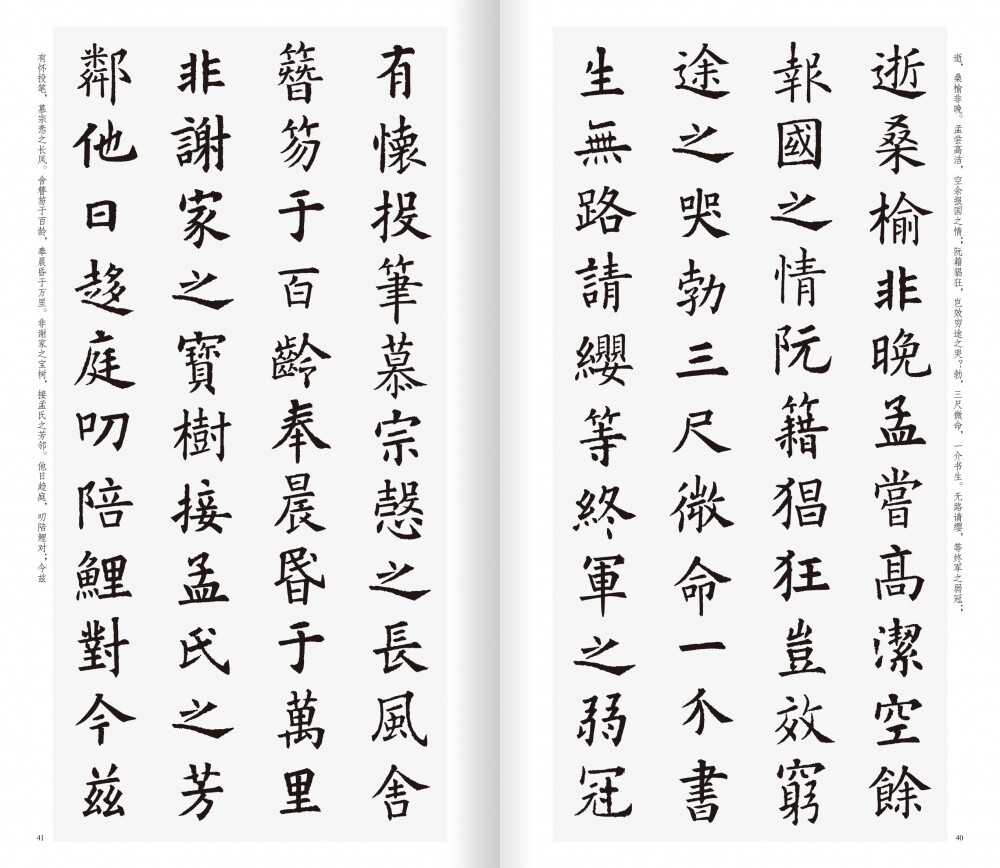 逝，桑榆非晚。孟尝高洁，空余报国之情；阮籍猖狂，岂效穷途之哭？勃，三尺微命，一介书生。无路请缨，等终军之弱冠；
逝桑榆非晚孟嘗高潔空餘
報國之情阮籍猖狂豈效窮
途之哭勃三尺微命一介書
生無路請纓等終軍之弱冠
40
有懷投筆慕宗愨之長風舍
簪笏于百齡奉晨昏于萬里
非謝家之寶樹接孟氏之芳
鄰他日趍庭叨陪鯉對今兹
有怀投笔，慕宗悫之长风。舍簪笏于百龄，奉晨昏于万里。非谢家之宝树，接孟氏之芳邻。他日趋庭，叨陪鲤对；今兹
41